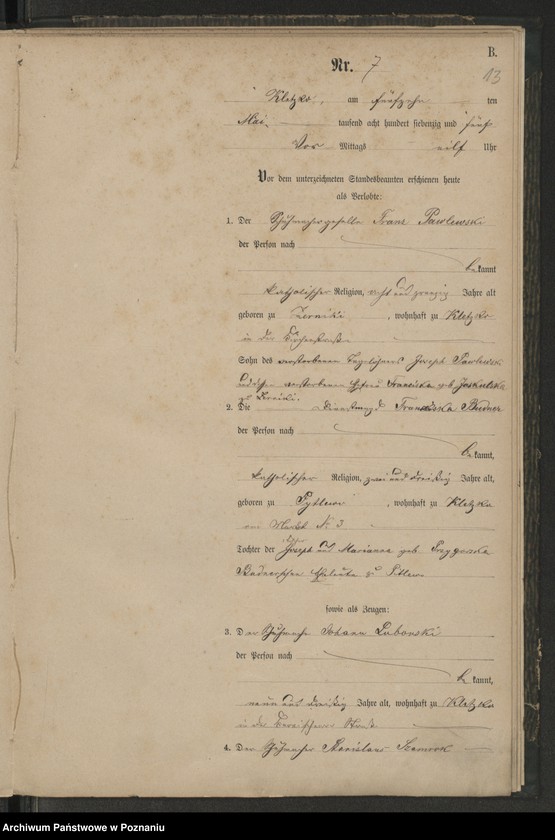 B.
13
Nr. 7
Kletzko, am fünfzehn ten
Mai tausend acht hundert siebenzig und fünf
Vor Mittags eilf Uhr
Vor dem unterzeichneten Standesbeamten erschienen heute
als Verlobte:
1. Der Schuhmachergeselle Franz Pawlewski
der Person nach
bekannt
katholischer Religion, acht und zwanzig Jahre alt
geboren zu , wohnhaft zu Kletzko
in der
Sohn des verstorbenen Tagelöhners Joseph Pawlewski
und dessen verstorbenen Ehefrau Franciska geb.
zu
2. Die Dienstmagd Franciska
der Person nach
bekannt,
katholischer Religion, zwei und dreißig Jahre alt,
geboren zu , wohnhaft zu Kletzko
am Markt N. 3
Tochter der Joseph und Marianna geb.
Eheleute zu
sowie als Zeugen:
3. Der Schuhmacher Johann Lubanski
der Person nach
bekannt,
neun und dreißig Jahre alt, wohnhaft zu Kletzko
in der
4. Der Schuhmacher Stanislaus
Archiwum Państwowe w Poznaniu